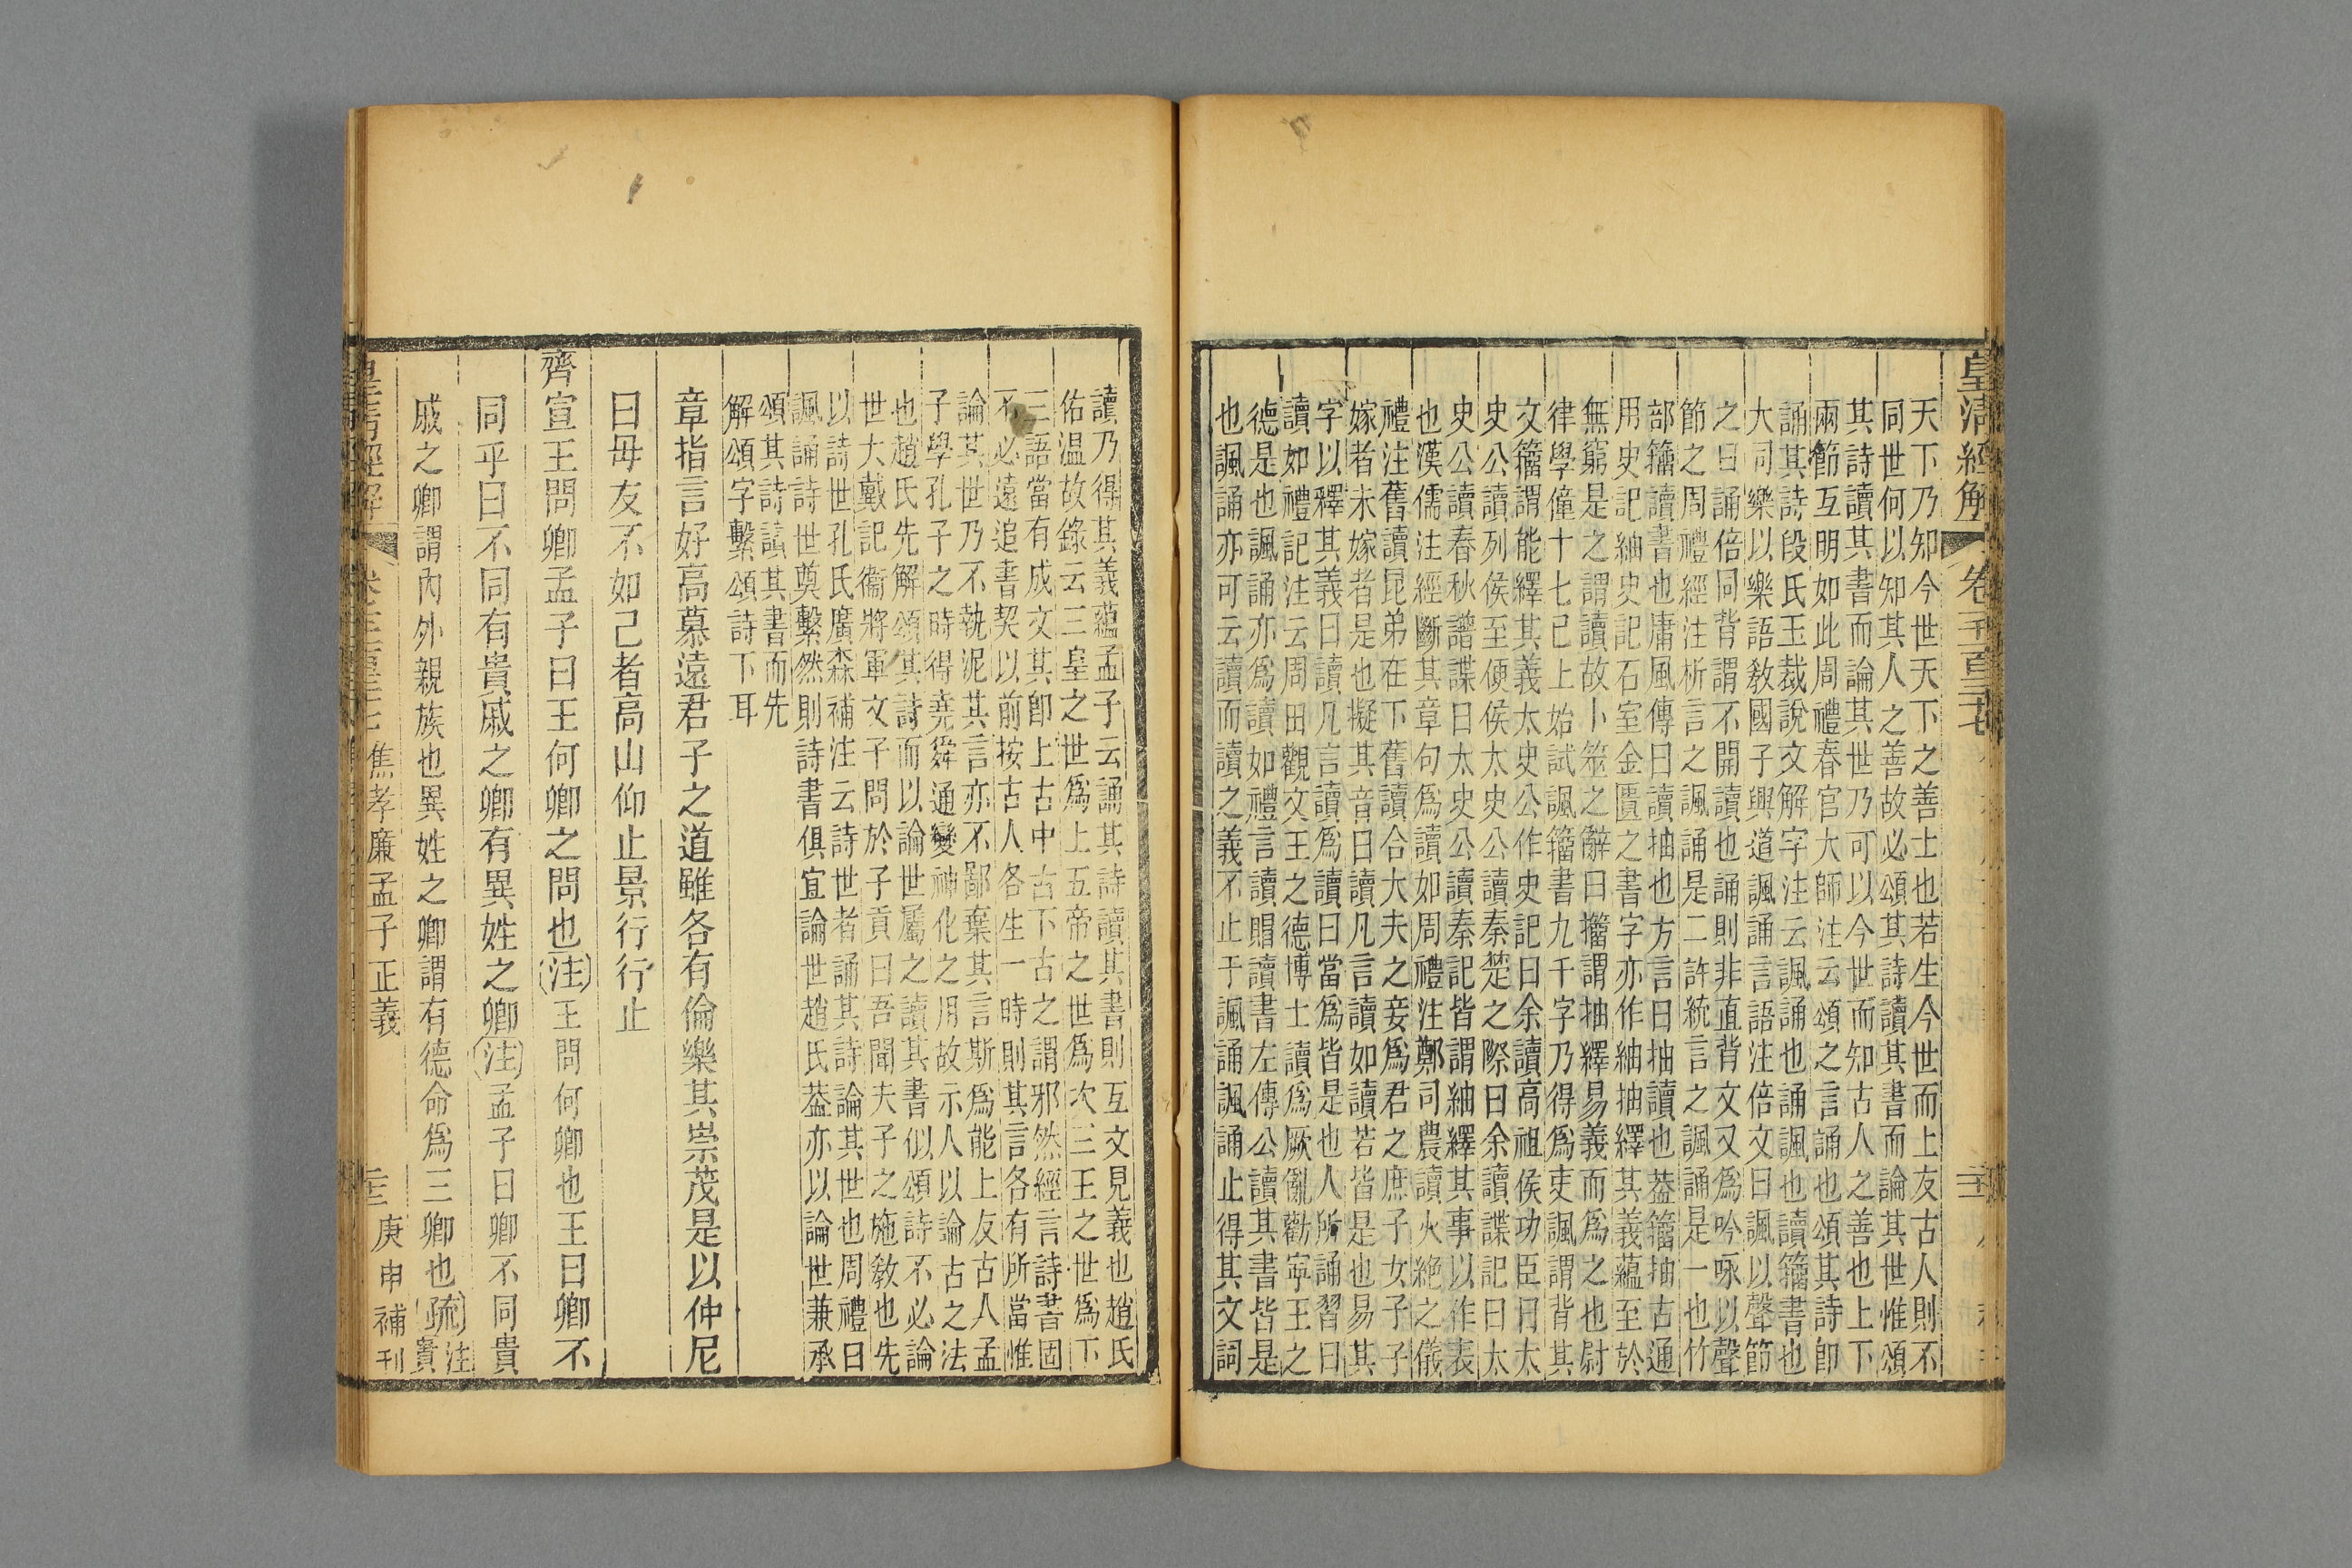 皇清經解 卷
天下乃知今世天下之善士也若生今世而上友古人則不
同世何以知其人之善故必頌其詩讀其書而論其世惟頌
其詩讀其書而論其世乃可以今世而知古人之善也上下
兩節互明如此周禮春官大師注云頌之言誦也頌其詩卽
誦其詩段氏玉裁說文解字注云諷誦也誦諷也讀籀書也
大司樂以樂語敎國子興道諷誦言語注倍文曰諷以聲節
之曰誦倍同背謂不開讀也誦則非直背文又爲吟咏以聲
節之周禮經注析言之諷誦是二許統言之諷誦是一也竹
部籀讀書也庸風傳曰讀抽也方言曰抽讀也葢籀抽古通
用史記紬史記石室金匱之書字亦作紬抽繹其義蘊至於
無窮是之謂讀故卜筮之辭曰籀謂抽繹易義而爲之也尉
律學僮十七已上始試諷籀書九千字乃得爲吏諷謂背其
文籀謂能繹其義太史公作史記曰余讀高祖侯功臣曰太
史公讀列侯至便侯太史公讀秦楚之際曰余讀諜記曰太
史公讀春秋譜諜曰太史公讀秦記皆謂紬繹其事以作表
也漢儒注經斷其章句爲讀如周禮注鄭司農讀火絕之儀
禮注舊讀昆弟在下舊讀合大夫之妾爲君之庶子女子子
嫁者未嫁者是也擬其音曰讀凡言讀如讀若皆是也易其
字以釋其義曰讀凡言讀爲讀曰當爲皆是也人所誦習曰
讀如禮記注云周田觀文王之德博士讀爲厥亂勸寧王之
德是也諷誦亦爲讀如禮言讀賵讀書左傳公讀其書皆是
也諷誦亦可云讀而讀之義不止于諷誦諷誦止得其文詞
讀乃得其義蘊孟子云誦其詩讀其書則互文見義也趙氏
佑温故錄云三皇之世爲上五帝之世爲次三王之世爲下
三語當有成文其卽上古中古下古之謂邪然經言詩書固
不必遠追書契以前按古人各生一時則其言各有所當惟
論其世乃不執泥其言亦不鄙棄其言斯爲能上友古人孟
子學孔子之時得堯舜通變神化之用故示人以論古之法
也趙氏先解頌其詩而以論世屬之讀其書似頌詩不必論
世大戴記衞將軍文子問於子貢曰吾聞夫子之施敎也先
以詩世孔氏廣森補注云詩世者誦其詩論其世也周禮曰
諷誦詩世奠繫然則詩書俱宜論世趙氏葢亦以論世兼承
頌其詩讀其書而先
解頌字繫頌詩下耳
章指言好高慕遠君子之道雖各有倫樂其崇茂是以仲尼
曰毋友不如己者高山仰止景行行止
齊宣王問卿孟子曰王何卿之問也注王問何卿也王曰卿不
同乎曰不同有貴戚之卿有異姓之卿注孟子曰卿不同貴
戚之卿謂內外親族也異姓之卿謂有德命爲三卿也疏注
賓
皇清經解 焦孝廉孟子正義 庚申補刊